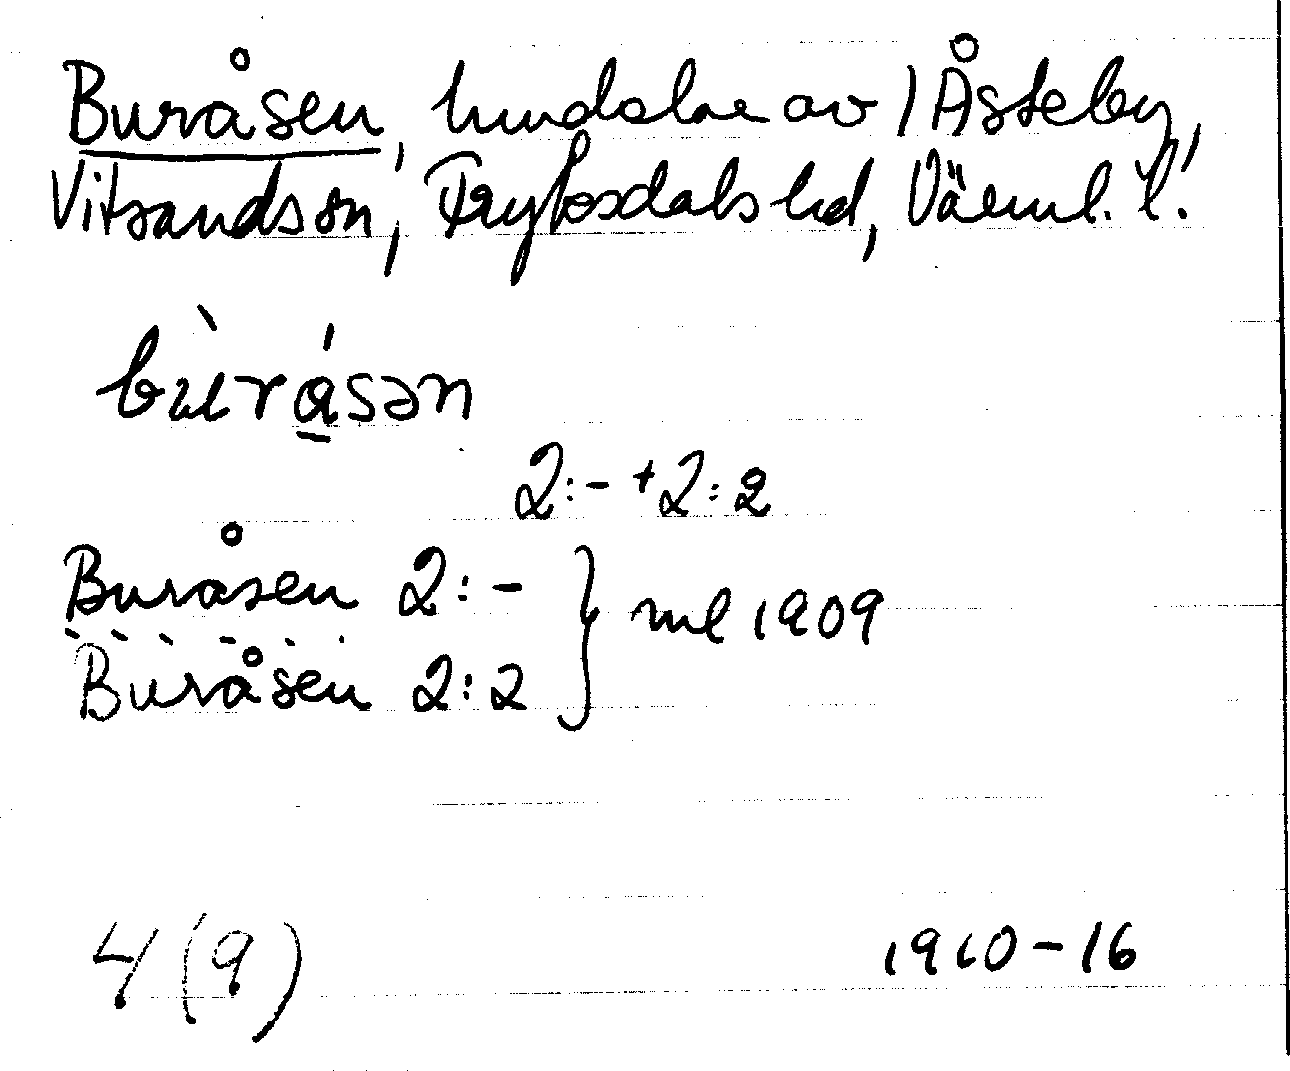 Buråsen, hmdelar av 1 Åsteby,
Vitsands sn, Fryksdals hd, Värml. l.
bùrásən
2:- + 2:2
Buråsen 2:- } ml 1909
Buråsen 2:2
4 (9) 1910-16